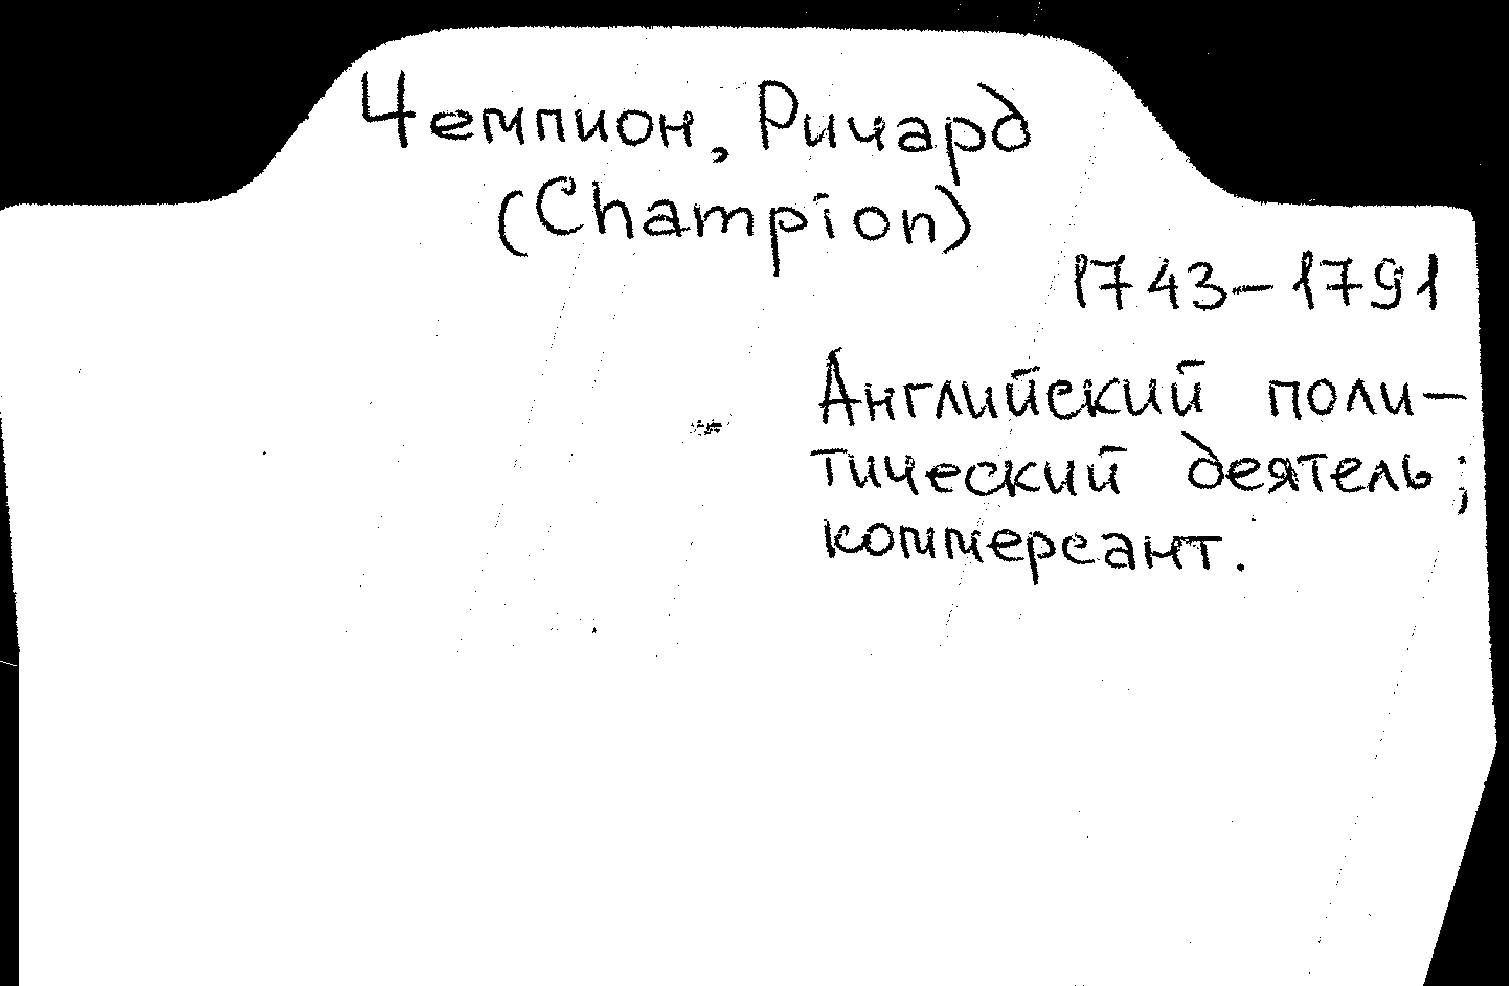 Чемпион, Ричард
(Champion)
1743–1791
Английский поли-
тический деятель;
коммерсант.